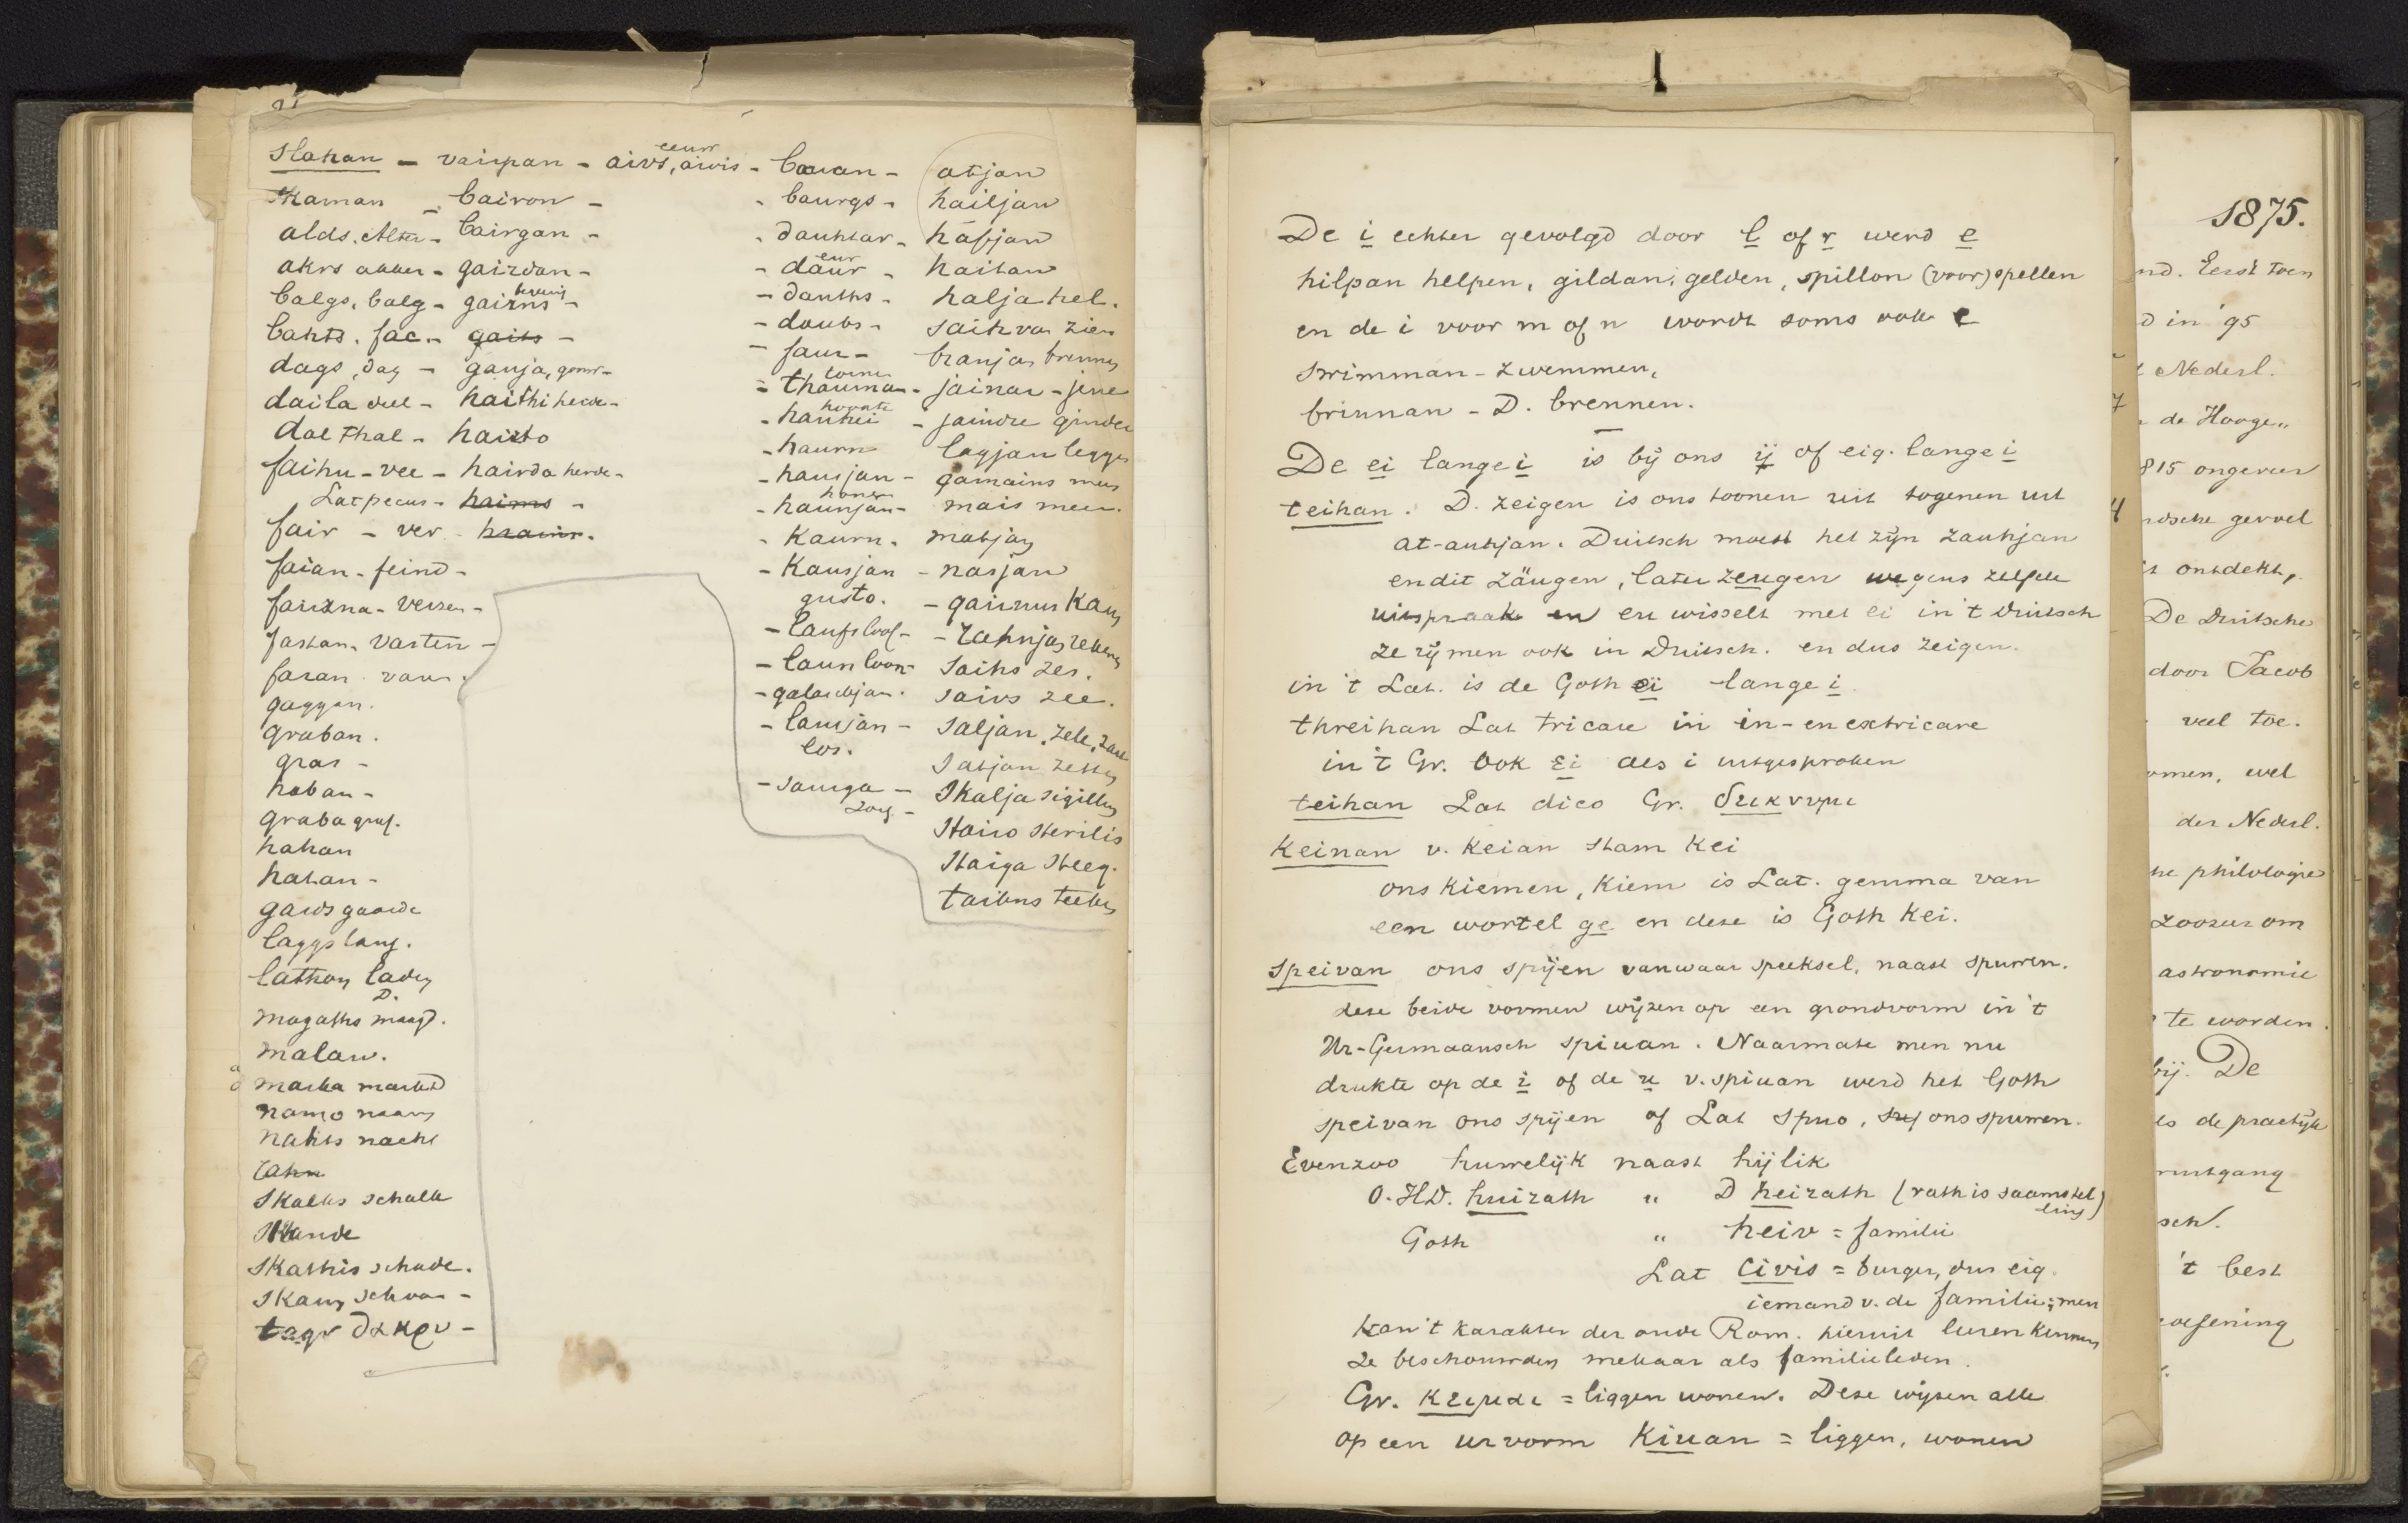 slahan - vairpan - aivs, aivis - bauan - atjan
eeuw
haman - bairan - - baurgs - hailjan
alds. Alter - bairgan - - dauhtar - hafjan
akrs akker - gairdan - - daur - haitan
deur
balgs. balg - gairns - - dauths - halja hel.
begeerig
bahts. fac. - gaits - - daubs - saihvan zien
dags, dag - gauja, gouw - - faur - branjan brennen
daila deel - haithi heide - - thaurnan - jainar - jene
toorne
dal thal - haisto - hauhei - jaindre ginder
hoogte
faihu - vee - hairda herde - - haurn lagjan leggen
Lat pecus - haims - - hausjan - gamains meus
fair - ver - hrains. - haunjan - mais meer.
hoonen
faian - feind - - kaurn - matjan
fairzna - verzen - - kausjan - nasjan
gusto. - gairnus
fastan. vasten - - laufs loof - - rahnjan rekenen
faran varen. - laun loon - saihs zes.
gaggan. - galaubjan. saivs zee.
graban. - lausjan - saljan, zele,
los.
gras - satjan zetten
haban - - sauga - skalja
zog -
graba graf. stairo sterilis
hahan staiga steeg.
hatan - taikns teeken
gards gaarde
laggs lang.
lathon laden
D.
magaths maagd.
malan.
marka markt
namo naam
nahts nacht
rahn
skalks schalk
skande
skathis schade.
skauns schoon -
tagr δακρυ -
De i echter gevolgd door l of r werd e
hilpan helpen, gildan, gelden, spillon (voor) spellen
en de i voor m of n wordt soms ook e
swimman - zwemmen,
brinnan - D. brennen.
De ei lange i is bij ons ij of eig. lange i
teihan. D. zeigen is ons toonen uit togenen uit
at-auhjan. Duitsch moest het zijn zauhjan
en dit zäugen, later zeugen wegens zelfde
uitspraak en eu wisselt met ei in 't Duitsch
ze rijmen ook in Duitsch. en dus zeigen.
in 't Lat. is de Goth ei lange i.
threihan Lat tricare in in- en extricare
in 't Gr. ook ει als i uitgesproken
teihan Lat dico Gr. δεικνυμι
Keinan v. keian stam Kei
ons kiemen, kiem is Lat. gemma van
een wortel ge en deze is Goth Kei.
Speivan ons spijen vanwaar speeksel, naast spuwen.
deze beide vormen wijzen op een grondvorm in 't
Ur-Germaansch spiuan. Naarmate men nu
drukte op de i of de u v. spiuan werd het Goth
speivan ons spijen of Lat spuo, ons spuwen.
Evenzoo huwelijk naast hijlik
O.HD. huirath " D heirath (rath is saamstel
ling)
Goth " heiv = familie
Lat civis = burger, dus eig.
iemand v. de familie; men
kan 't karakter der oude Rom. hieruit leeren kennen
ze beschouwden mekaar als familieleden.
Gr. κειμαι = liggen wonen. Deze wijzen alle
op een urvorm Kiuan = liggen, wonen
1875.
nd. Eerst toen
d in '95
Nederl.
de Hooge"
815 ongeveer
ndsche gevoel
ontdekt,
De Duitsche
door Jacob
veel toe.
omen, wel
der Nederl.
he philologie
zoozeer om
astronomie
te worden.
bij. De
ls de practijk
ruitgang
sch.
't best
oefening